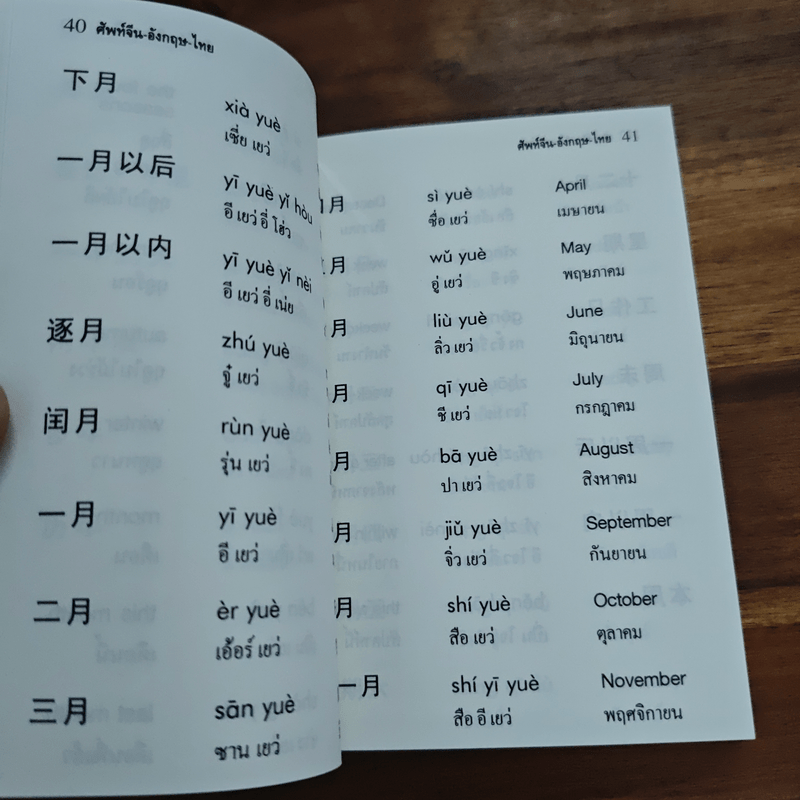 40 ศัพท์จีน-อังกฤษ-ไทย
下月 xià yuè
เซี่ย เยว่
一月以后 yī yuè yǐ hòu
อี เยว่ อี่ โฮ่ว
一月以内 yī yuè yǐ nèi
อี เยว่ อี่ เน่ย
逐月 zhú yuè
จู๋ เยว่
闰月 rùn yuè
รุ่น เยว่
一月 yī yuè
อี เยว่
二月 èr yuè
เอ้อร์ เยว่
三月 sān yuè
ซาน เยว่
ศัพท์จีน-อังกฤษ-ไทย 41
月 sì yuè April
ซื่อ เยว่ เมษายน
月 wǔ yuè May
อู่ เยว่ พฤษภาคม
月 liù yuè June
ลิ่ว เยว่ มิถุนายน
月 qī yuè July
ชี เยว่ กรกฎาคม
月 bā yuè August
ปา เยว่ สิงหาคม
月 jiǔ yuè September
จิ่ว เยว่ กันยายน
月 shí yuè October
สือ เยว่ ตุลาคม
一月 shí yī yuè November
สือ อี เยว่ พฤศจิกายน